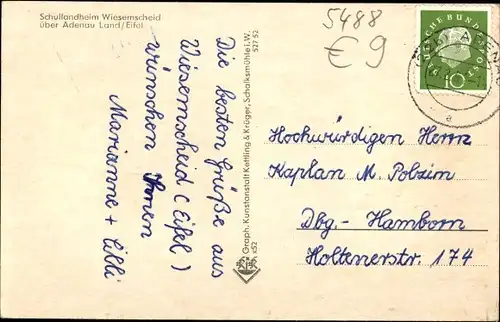 Schullandheim Wiesemscheid
über Adenau Land/Eifel
5488
€ 9
DEUTSCHE BUNDESPOST
10
Die besten Grüße aus
Wiesemscheid (Eifel)
wünschen Ihnen
Marianne + Lilli
Graph. Kunstanstalt Kettling & Krüger, Schalksmühle i. W.
527 52
Hochwürdigen Herrn
Kaplan M. Polzim
Dbg.- Hamborn
Holtenerstr. 174